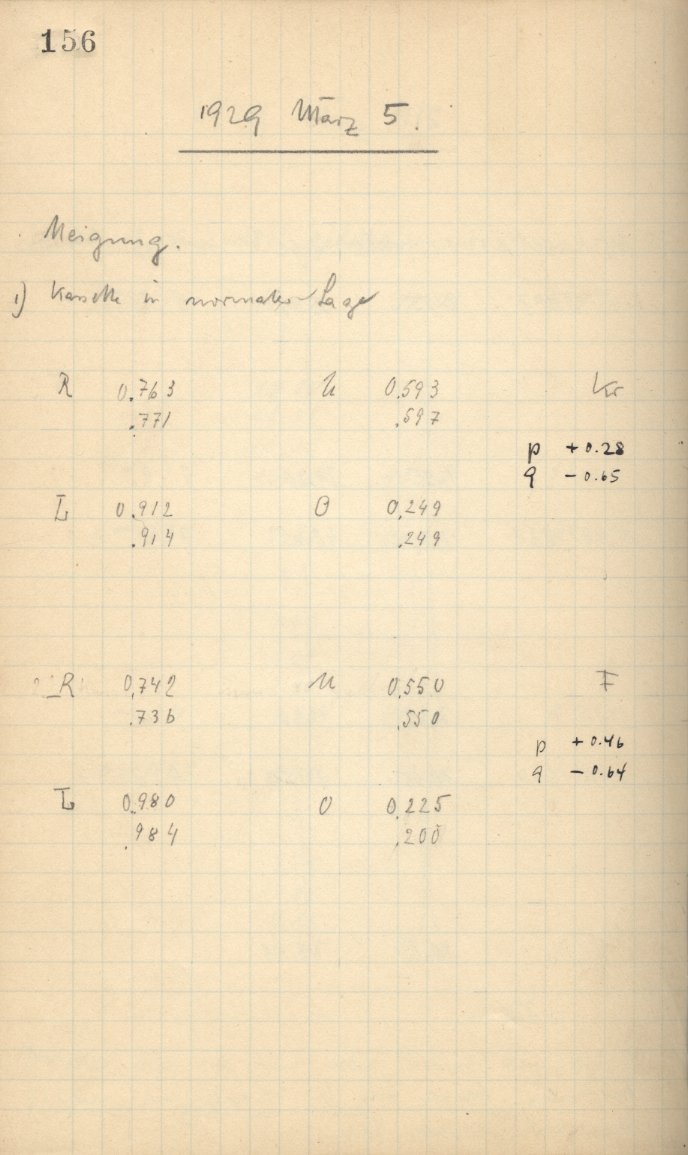 156
1929 März 5.
Neigung.
1) Kassette in normaler Lage
R 0.763 U 0.593 Kr
.771 .597
p +0.28
q -0.65
L 0.912 O 0,249
.914 .249
R 0,742 U 0,550 F
.736 .550
p +0.46
q -0.64
L 0.980 O 0,225
.984 .200